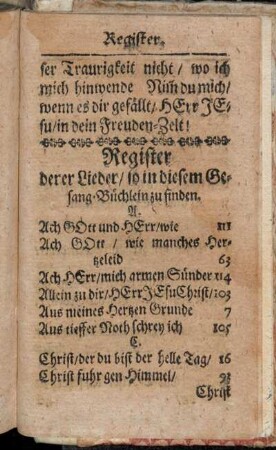 Register.
ser Traurigkeit nicht / wo ich
mich hinwende Nim du mich /
wenn es dir gefällt / HErr JE-
su / in dein Freuden-Zelt!
Register
derer Lieder / so in diesem Ge-
sang-Büchlein zu finden.
A.
Ach GOtt und HErr / wie 111
Ach GOtt / wie manches Her-
tzeleid 63
Ach HErr / mich armen Sünder 114
Allein zu dir / HErr JEsu Christ / 103
Aus meines Hertzen Grunde 7
Aus tieffer Noth schrey ich 105
C.
Christ / der du bist der helle Tag / 16
Christ fuhr gen Himmel / 93
Christ